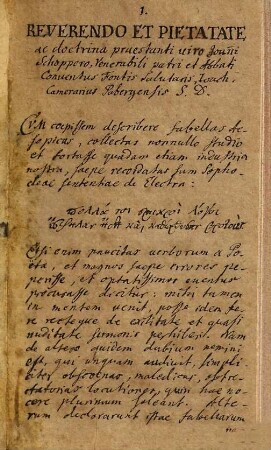 1.
REVERENDO ET PIETATE
ac doctrina praestanti viro Joañi
Schoppero, Venerabili patri et Abbati
Conventus Fontis Salutaris, Joach.
Camerarius Pabergensis S. D.
CVM coepissem describere fabellas Ae-
sopicas, collectas nonnullo studio
et fortasse quadam etiam industria
nostra, saepe recordatus sum Sopho-
cleae sententiae de Electra:
Etsi enim paucitas verborum a Po-
eta, et magnos saepe errores pe-
perisse, et optatissimos eventus
procurasse dicitur: mihi tamen
in mentem venit, posse idem fe-
re recteque de exilitate et quasi
nuditate sermonis perhiberi. Nam
de altero quidem dubium nemini
est, qui unquam audivit, simpli-
citer obscoenas, maledicas, obtre-
ctatorias locutiones, quin hae no-
cere plurimum soleant. Alte-
rum declararunt istae fabellarum